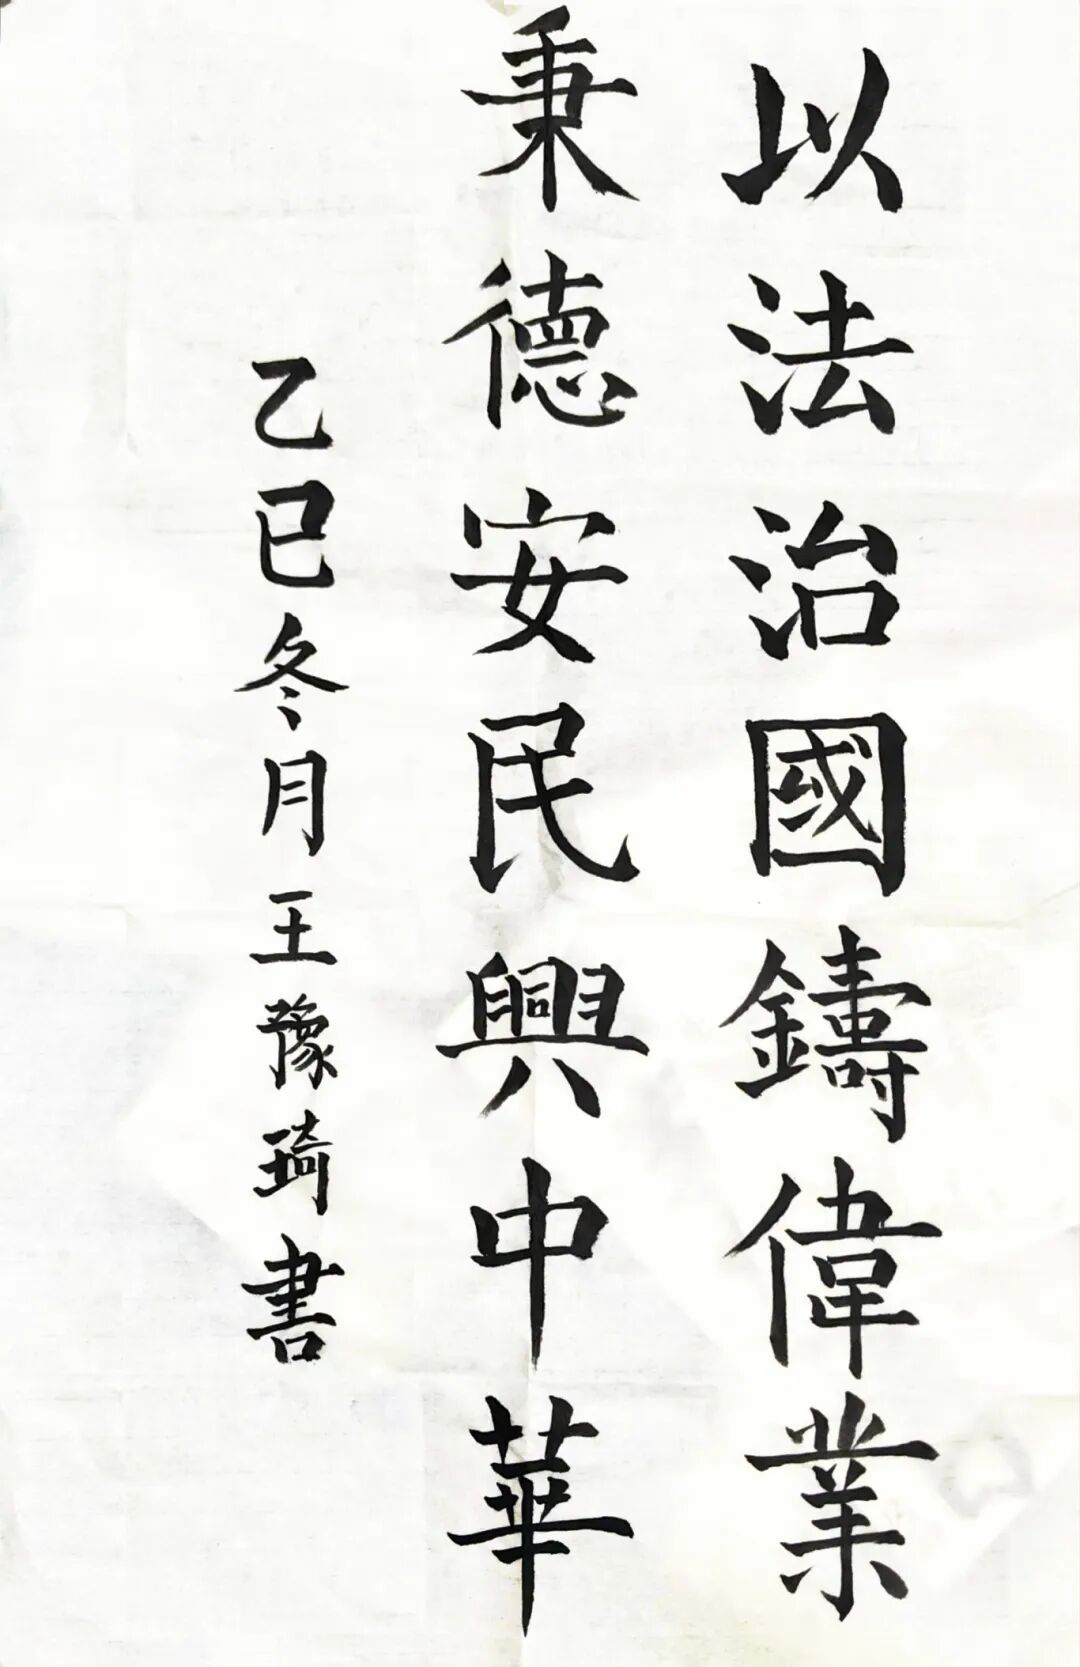 以法治國鑄偉業
秉德安民興中華
乙巳冬月王藜琦書